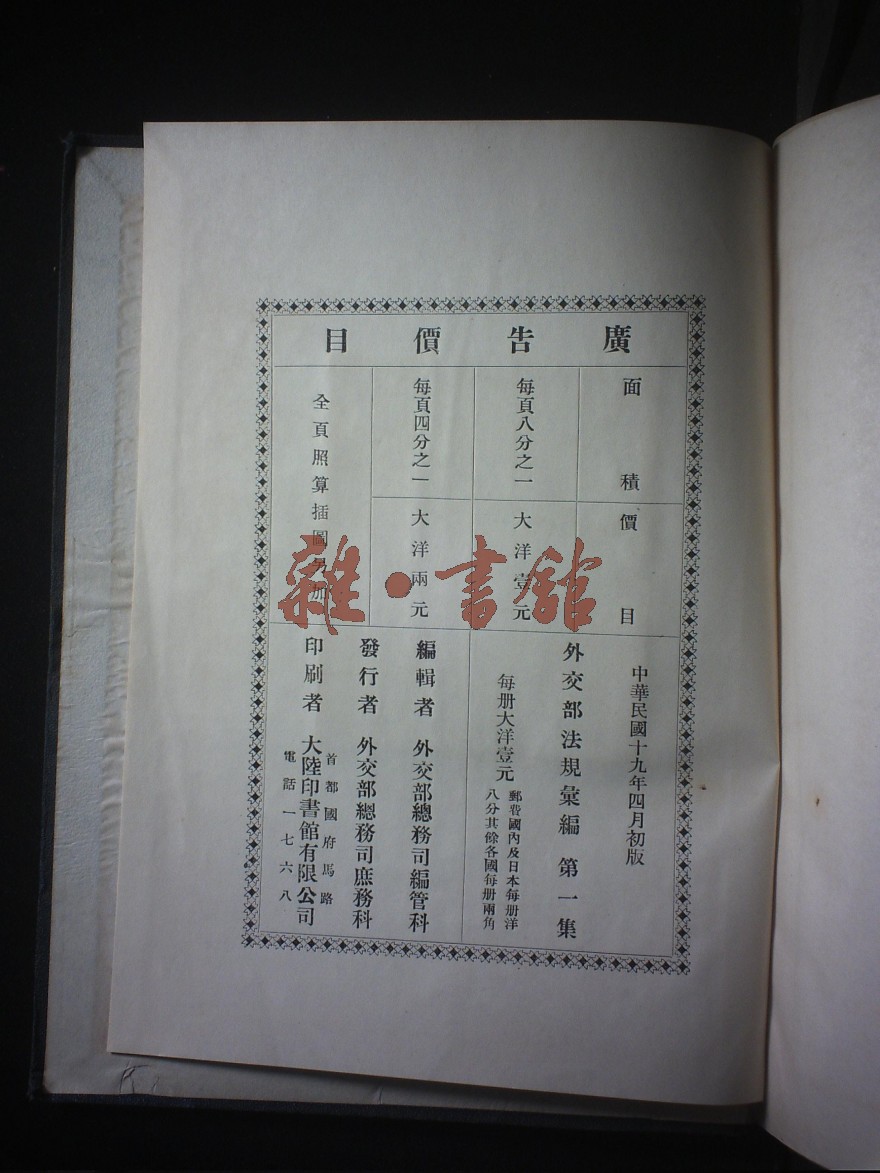 廣告價目
面積
價目
每頁八分之一
大洋壹元
每頁四分之一
大洋兩元
全頁照算插圖另加
中華民國十九年四月初版
外交部法規彙編 第一集
每册大洋壹元
郵費國內及日本每册洋
八分其餘各國每册兩角
編輯者 外交部總務司編管科
發行者 外交部總務司庶務科
印刷者 大陸印書館有限公司
首都國府馬路
電話一七六八
雜·書館